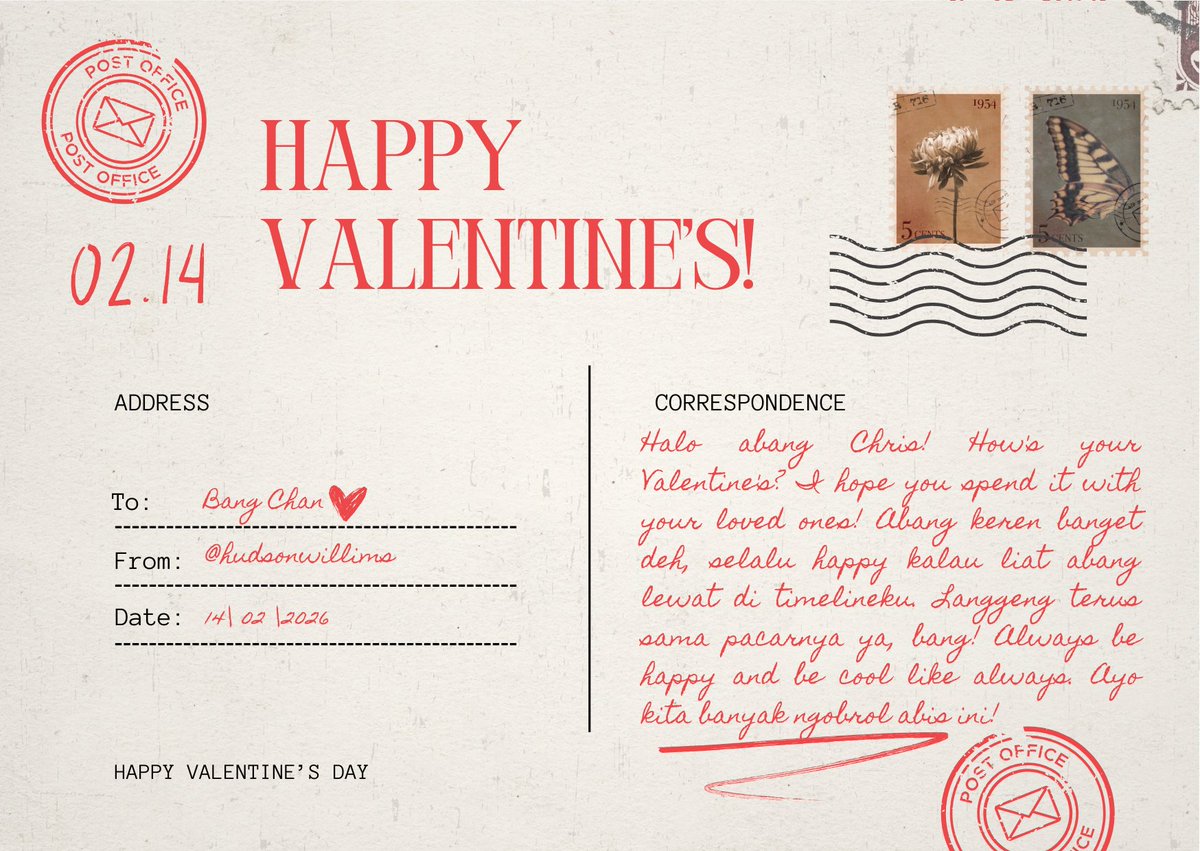 POST OFFICE
POST OFFICE
HAPPY
VALENTINE'S!
02.14
726
1954
5 CENTS
726
1954
5 CENTS
ADDRESS
To: Bang Chan
From: @hudsonwillims
Date: 14| 02 |2026
HAPPY VALENTINE'S DAY
CORRESPONDENCE
Halo abang Chris! How's your
Valentine's? I hope you spend it with
your loved ones! Abang keren banget
deh, selalu happy kalau liat abang
lewat di timelineku. Langgeng terus
sama pacarnya ya, bang! Always be
happy and be cool like always. Ayo
kita banyak ngobrol abis ini!
POST OFFICE